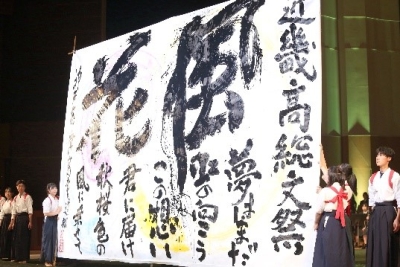 近畿高総文祭
風
夢はまだ
この想い
君に届け
花
秋桜色の
風に乗せて